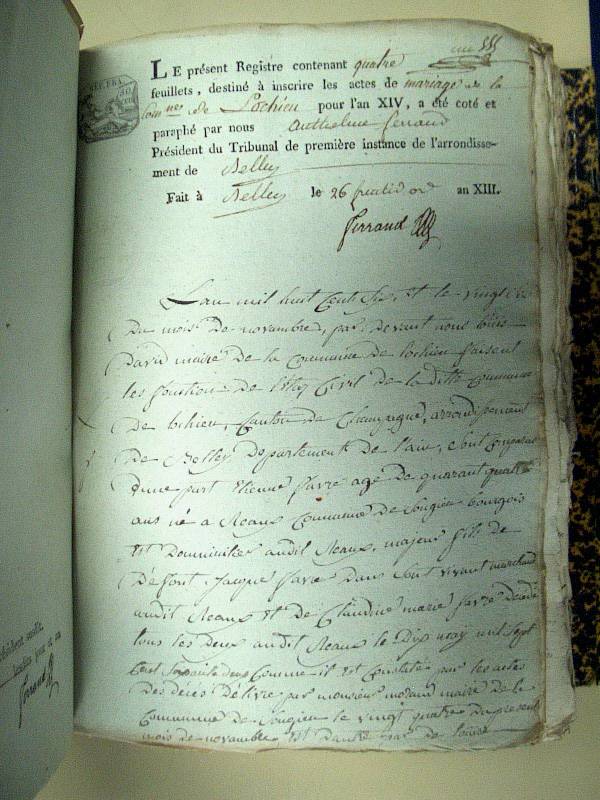 LE présent Registre contenant quatre
feuillets, destiné à inscrire les actes de mariage de la
Comnes de Lochieu pour l'an XIV, a été coté et
paraphé par nous Anthelme Ferrand
Président du Tribunal de première instance de l'arrondisse-
ment de Belley
Fait à Belley le 26 fructidor an XIII.
Ferrand
L'an mil huit Cent Six, et le vingt
Du mois De novembre, par Devant nous
David maire de la Commune De lochieu faisent
les fonction De l'Etat Civil De la ditte Commune
De lochieu, Canton De Champagne, arrondissement
De Belley Departement De l'ain, Sont Comparus
D'une part Etienne favre agé De quarant quatre
ans né a Meaux Commune De Songieu bourgeois
Et Domicilier audit Meaux, majeur fils De
Défont Jacque favre Dans Son vivant marchand
audit Meaux Et De Claudine marie favre Décédé
tous les Deux audit Meaux le Dix may mil Sept
Cent Soixante deux Comme il Est Constaté par les actes
Des Décès Délivré par monsieur morand maire De la
Commune De Songieu le vingt quatre Du present
mois De novembre Et D'autre part De
Ferrand